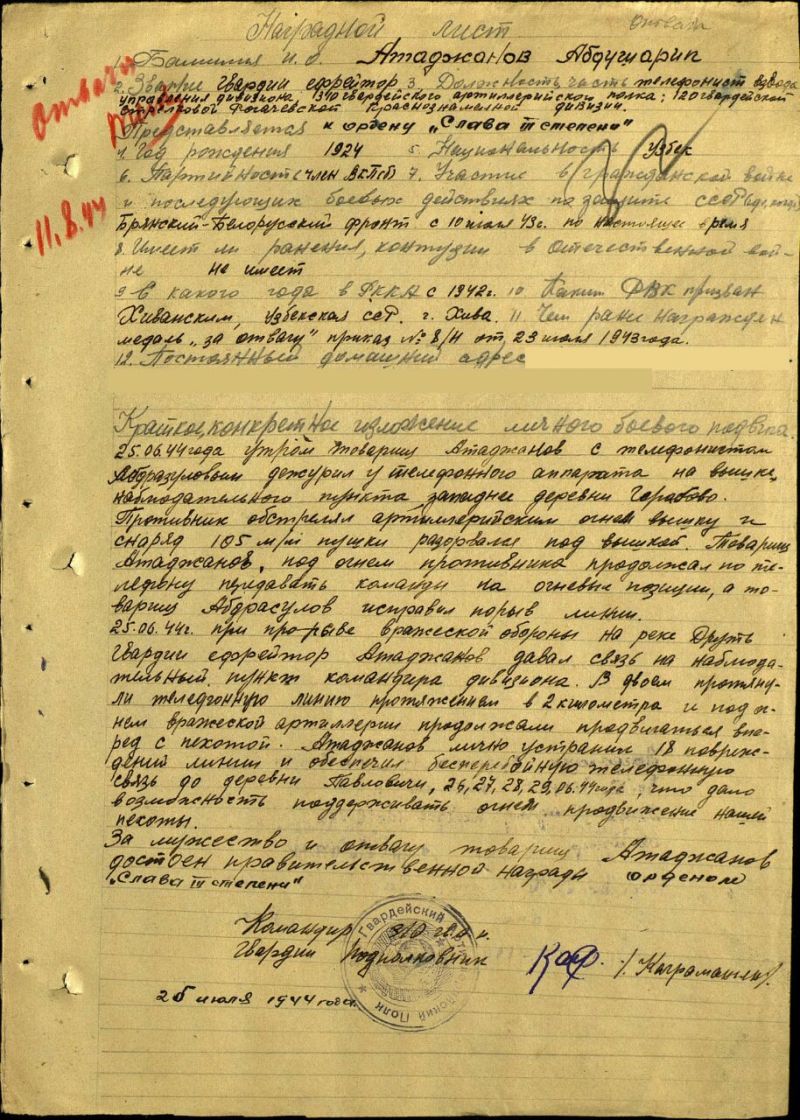 Наградной лист
Отвага
1. Фамилия и. о. Атаджанов Абдушарип
2. Звание гвардии ефрейтор 3. Должность, часть телефонист взвода
управления дивизиона, гвардейского артиллерийского полка; 120 гвардейской
стрелковой Рогачевской Краснознаменной дивизии.
Представляется к ордену „Слава III степени"
4. Год рождения 1924 5. Национальность узбек
6. Партийность член ВКП(б) 7. Участие в гражданской войне
и последующих боевых действиях по защите СССР (где, когда)
Брянский-Белорусский фронт с 10 июля 43г. по настоящее время
8. Имеет ли ранения, контузии в отечественной вой-
не не имеет
9. С какого года в РККА с 1942г. 10. Каким РВК призван
Хиванским, Узбекская ССР. г. Хива. 11. Чем ранее награжден
медаль „за отвагу" приказ № 8/Н от 23 июля 1943 года.
12. Постоянный домашний адрес
Отвага
11.8.44
Краткое, конкретное изложение личного боевого подвига.
25.06.44 года утром товарищ Атаджанов с телефонистом
Абдразуловым дежурил у телефонного аппарата на вышке,
наблюдательного пункта западнее деревни
Противник обстрелял артиллерийским огнем вышку и
снаряд 105 м/м пушки разорвался под вышкой. Товарищ
Атаджанов, под огнем противника продолжал по те-
лефону передавать команды на огневые позиции, а то-
варищ Абдрасулов исправил порыв линии.
25.06.44г. при прорыве вражеской обороны на реке Друть
гвардии ефрейтор Атаджанов давал связь на наблюда-
тельный пункт командира дивизиона. В двоем протяну-
ли телефонную линию протяжением в 2 километра и под ог-
нем вражеской артиллерии продолжали продвигаться впе-
ред с пехотой. Атаджанов лично устранил 18 повреж-
дений линии и обеспечил бесперебойную телефонную
связь до деревни Павловичи, 26, 27, 28, 29.06.44 года, что дало
возможность поддерживать огнем продвижение нашей
пехоты.
За мужество и отвагу товарищ Атаджанов
достоен правительственной награды орденом
„Слава III степени"
Командир
Гвардии Подполковник
26 июля 1944 года.
Гвардейский
Полк